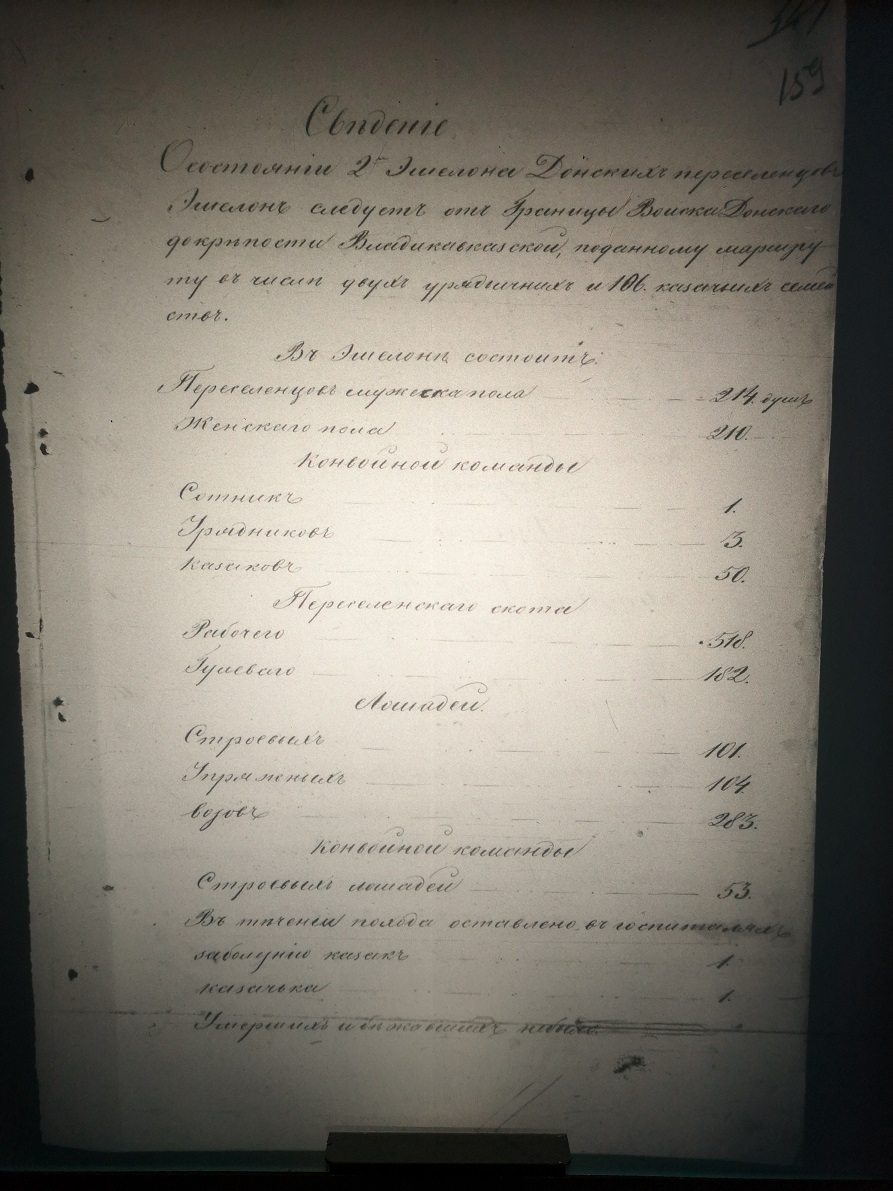 159
Свѣденіе
О состояніи 2го Эшелона Донскихъ переселенцовъ
Эшелонъ следуетъ отъ Границы Войска Донскаго
до крѣпости Владикавказской, по данному маршру-
ту въ числѣ двухъ урядничихъ и 106. казачьихъ семей
ствъ.
Въ Эшелонѣ состоитъ:
Переселенцовъ мужеска пола 214. душъ
Женскаго пола 210.
Конвойной команды
Сотникъ 1.
Урядниковъ 3.
Казаковъ 50.
Переселенскаго скота
Рабочего 518.
Гулеваго 182.
Лошадей.
Строевыхъ 101.
Упряжныхъ 104.
возовъ 283.
Конвойной команды
Строевыхъ лошадей 53.
Въ теченіи похода оставлено въ госпиталяхъ
заболевшаго казакъ 1.
казачька 1.
Умершихъ и бѣжавшихъ небыло.